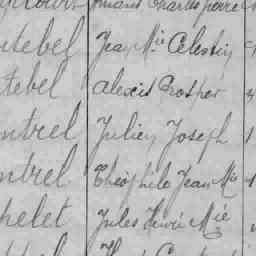 Charles Pierre
utebel Jean Mie Célestin
tebel Alexis Prosper
ntrel Julien Joseph
ntrel Théophile Jean Mie
helet Jules Henri Mie